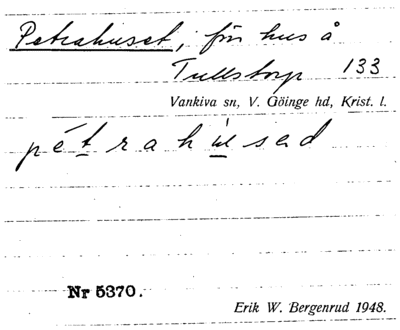 Petrahuset, fön hus å
Tullstorp 133
Vankiva sn, V. Göinge hd, Krist. l.
pétrahúsed
Nr 5370.
Erik W. Bergenrud 1948.